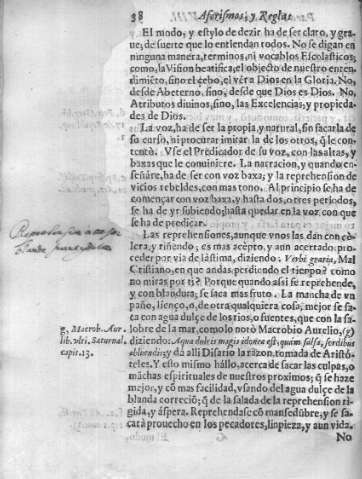 38 Aforismos, y Reglas
El modo, y estylo de dezir ha de ser claro, y gra-
ue, de suerte que lo entiendan todos. No se digan en
ninguna manera, terminos, ni vocablos Escolasticos;
como, la Vision beatifica, el objecto de nuestro enten
dimiẽto, sino el cebo, el vèr a Dios en la Gloria. No,
desde Abeterno. sino, desde que Dios es Dios. No,
Atributos diuinos, sino, las Excelencias, y propieda-
des de Dios.
La voz, ha de ser la propia, y natural, sin sacarla de
su curso, ni procurar imitar la de los otros, q̃ le con-
tentã. Vse el Predicador de su voz, con las altas, y
baxas que le conuiniere. La narracion, y quando en-
señare, ha de ser con voz baxa; y la reprehension de
vicios rebeldes, con mas tono. Al principio se ha de
començar con voz baxa, y hasta dos, o tres periodos,
se ha de yr subiendo, hasta quedar en la voz con que
se ha de predicar.
Las reprehensiones, aunque vnos las dan con co-
lera, y riñendo; es mas acepto, y aun acertado, pro-
ceder por via de lastima, diziendo: Verbi gratia, Mal
Christiano, en que andas perdiendo el tiẽpo? como
no miras por ti? Porque quando assi se reprehende,
y con blandura, se saca mas fruto. La mancha de vn
paño, lienço, o, de otra qualquiera cosa, mejor se sa-
ca con agua dulce de los rios, o fuentes, que con la sa-
lobre de la mar, como lo notò Macrobio Aurelio, (g)
diziendo: Aqua dulcis magis idonea est, quàm salsa, sordibus
abluendis; y dà alli Disario la razon, tomada de Aristò-
teles. Y esto mismo hallo, acerca de sacar las culpas, o
mãchas espirituales de nuestros proximos; q̃ se haze
mejor, y cõ mas facilidad, vsando del agua dulçe de la
blanda correciõ; q̃ de la salada de la reprehension ri-
gida, y áspera. Reprehendase cõ mansedũbre, y se sa-
carà prouecho en los pecadores, limpieza, y aun vida.
No
g. Macrob. Aur.
lib. vlti. Saturnal.
capit. 13.